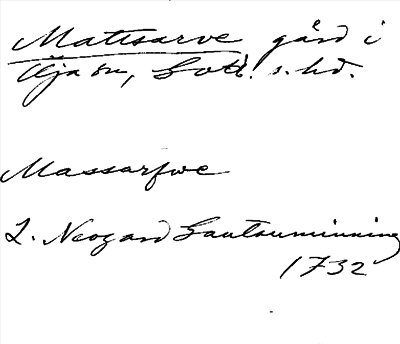 Mattsarve gård i
Öja sn, Gotl. s. hd.
Massarfwe
L. Neogard Gautauminning
1732